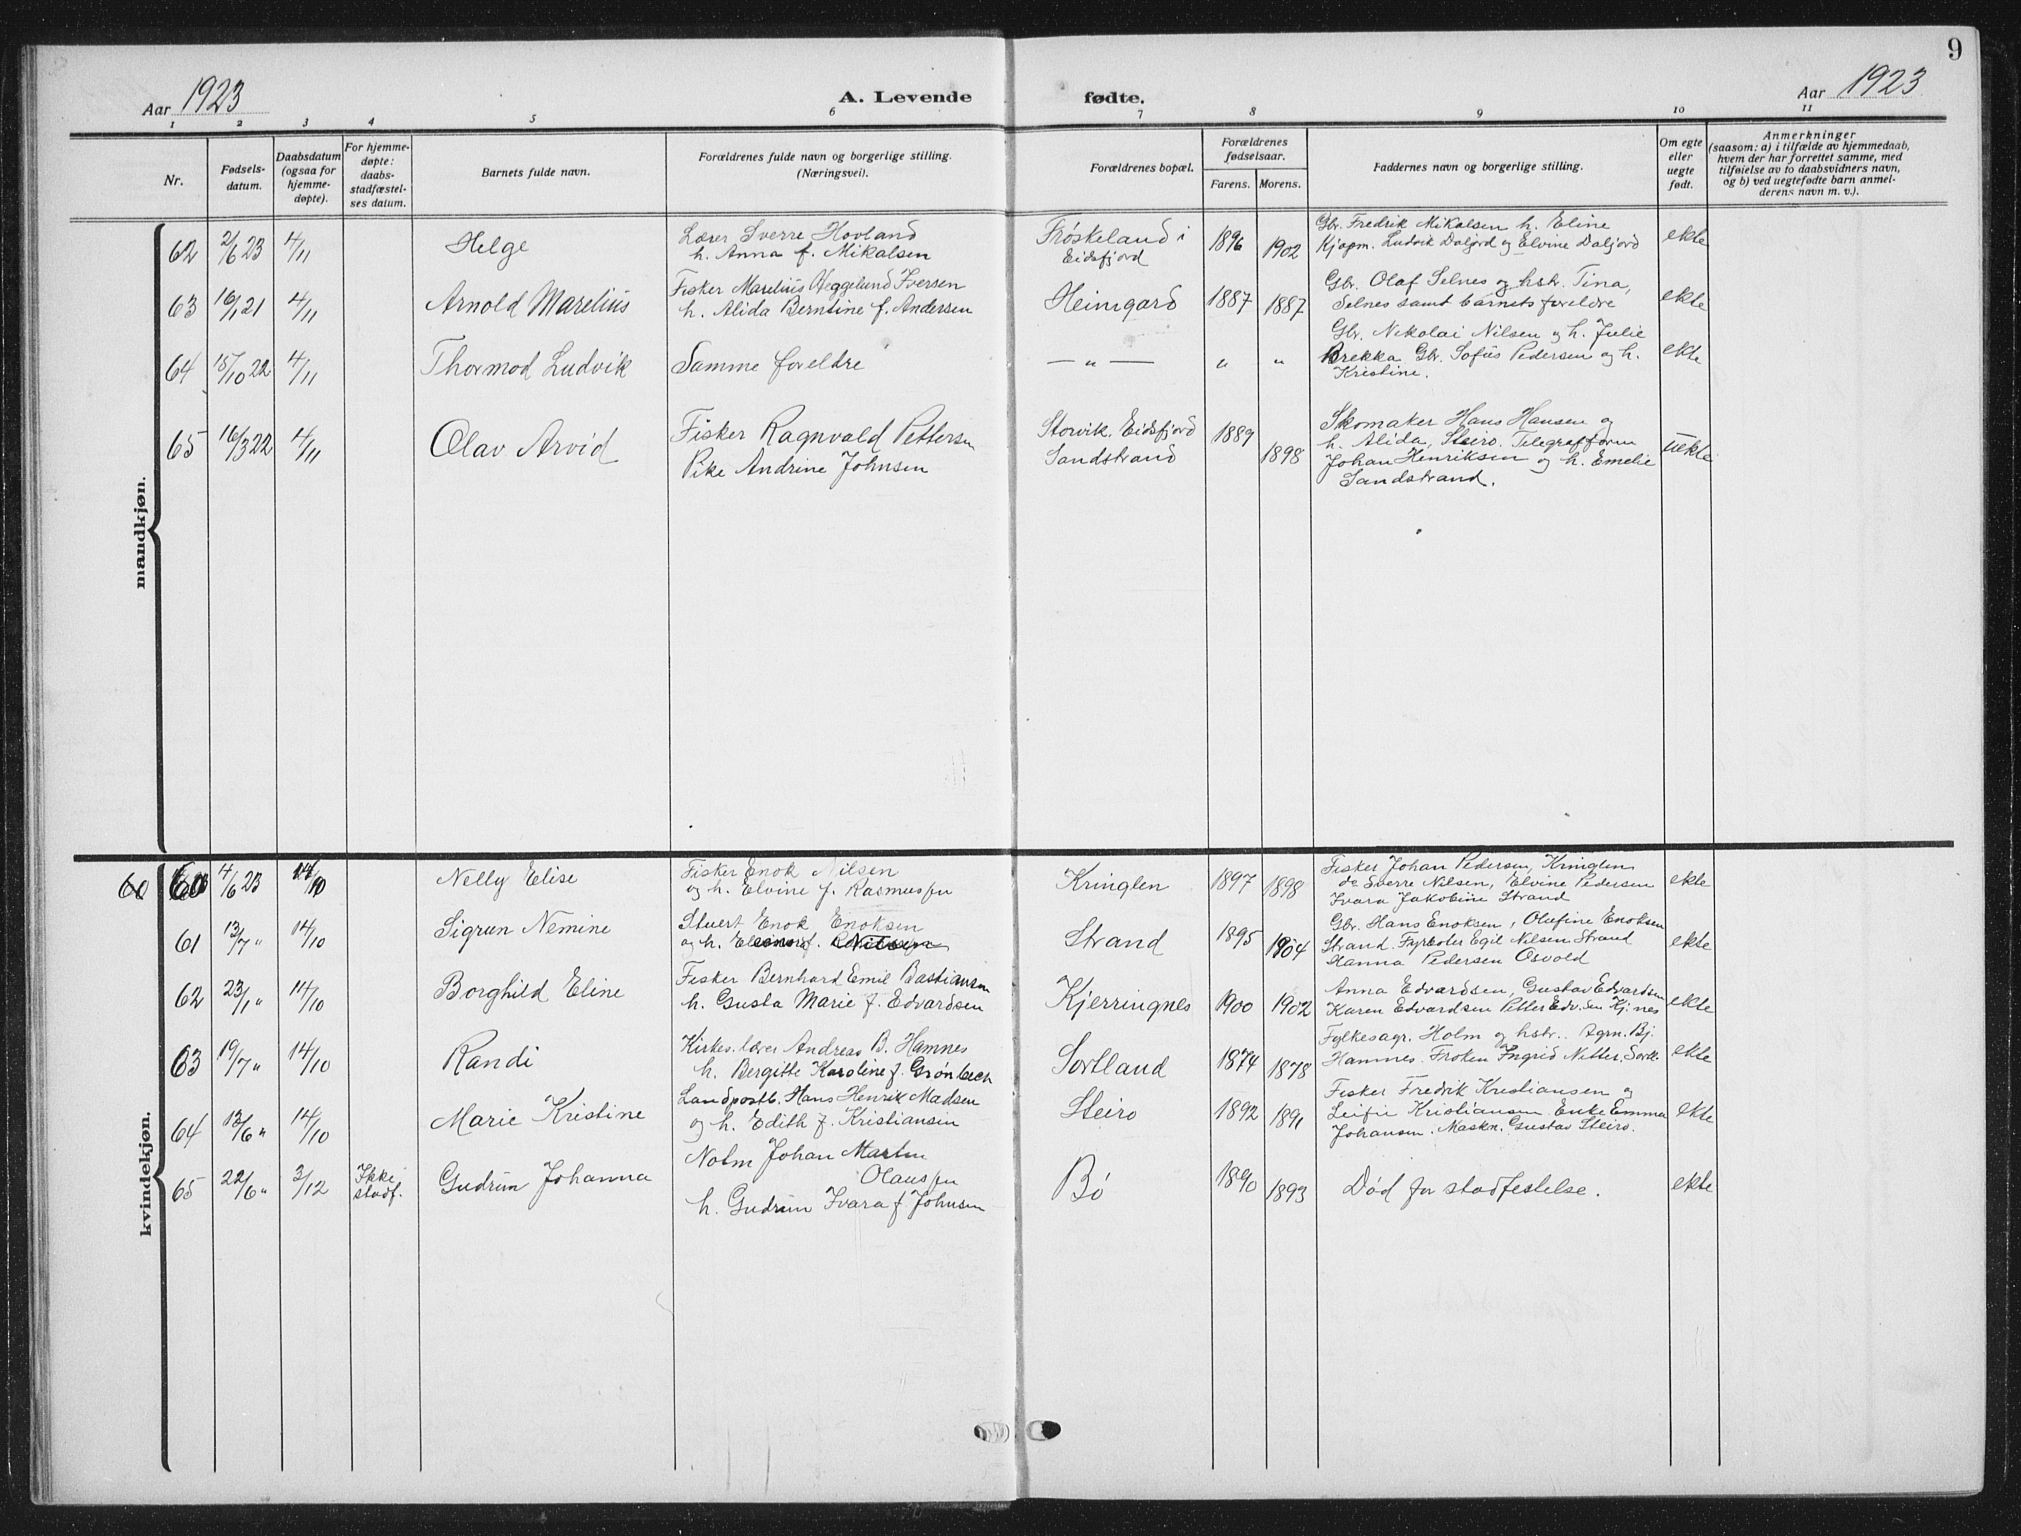 9
Aar 1923
A. Levende
fødte.
Aar 1923
1 2 3 4 5 6 7 8 9 10 11
Nr.
Fødsels-
datum.
Daabsdatum
(ogsaa for
hjemme-
døpte).
For hjemme-
døpte:
daabs-
stadfæstel-
ses datum.
Barnets fulde navn.
Forældrenes fulde navn og borgerlige stilling.
(Næringsvei).
Forældrenes bopæl.
Forældrenes
fødselsaar.
Farens. Morens.
Faddernes navn og borgerlige stilling.
Om egte
eller
uegte
født.
Anmerkninger
(saasom: a) i tilfælde av hjemmedaab,
hvem der har forrettet samme, med
tilføielse av to daabsvidners navn,
og b) ved uegtefødte barn anmel-
derens navn m. v.).
mandkjøn.
62 2/6 23 4/11 Helge
Lærer Sverre Hovland
h. Anna f. Mikalsen
Frøskeland i
Eidsfjord
1896 1902
Gbr. Fredrik Mikalsen h. Eline
Kjøpm. Ludvik Daljord og Elvine Daljord
ekte
63 16/1 21 4/11 Arnold Marelius
Fisker Marelius Heggelund Iversen
h. Alida Berntine f. Andersen
Heimgard 1887 1887
Gbr. Olaf Selnes og hstr. Tina,
Selnes samt barnets foreldre
ekte
64 15/10 22 4/11 Thormod Ludvik
Samme foreldre
— " — " "
Gbr. Nikolai Nilsen og h. Julie
Brekka Gbr. Sofus Pedersen og h.
Kristine.
ekte
65 16/3 22 4/11 Olav Arvid
Fisker Ragnvald Pettersen
Pike Andrine Johnsen
Storvik. Eidsfjord
Sandstrand
1889 1898
Skomaker Hans Hansen og
h. Alida, Steiro. Telegrafform
Johan Henriksen og h. Emelie
Sandstrand.
uekte
kvindekjøn.
60 60 4/6 23 14/10 Nelly Elise
Fisker Enok Nilsen
og h. Elvine f. Rasmussen
Kringlen 1897 1898
Fisker Johan Pedersen, Kringlen
do Sverre Nilsen, Elvine Pedersen
Ivara Jakobine Strand
ekte
61 13/7 " 14/10 Sigrun Nemine
Stuert Enok Enoksen
og h. f. Nilsen
Strand 1895 1904
Gbr. Hans Enoksen, Olufine Enoksen
Strand. Fyrbøter Egil Nilsen Strand
Hanna Pedersen Osvold
ekte
62 23/1 " 14/10 Borghild Eline
Fisker Bernhard Emil Bastiansen
h. Gusta Marie f. Edvardsen
Kjerringnes 1900 1902
Anna Edvardsen, Gustav Edvardsen
Karen Edvardsen Petter Edv.sen Kj.nes
ekte
63 19/7 " 14/10 Randi
Kirkes. lærer Andreas B. Hamnes
h. Bergitte Karoline f. Grønbech
Sortland 1874 1878
Fylkesagr. Holm og hstr. Agrn. Bj.
Hamnes. Frøken Ingrid Nitter. Sortl.
ekte
64 13/6 " 14/10 Marie Kristine
Landpostb. Hans Henrik Madsen
og h. Edith f. Kristiansen
Steiro 1892 1891
Fisker Fredrik Kristiansen og
Leifie Kristiansen. Enke Emma
Johansen. Maskn. Gustav Steiro.
ekte
65 22/6 " 3/12 Ikke
stadf.
Gudrun Johanna
Johan Martin
Olaussen
h. Gudrun Ivara f. Johnsen
Bø 1890 1893
Død før stadfestelse.
ekte